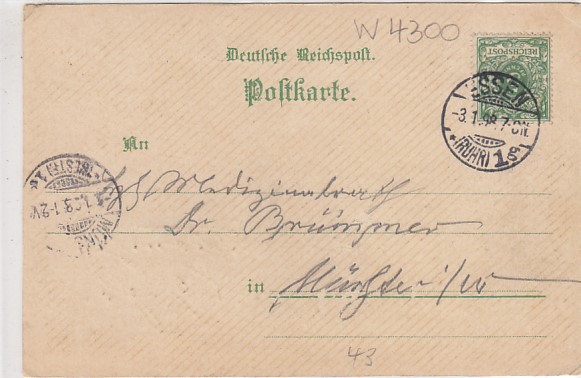 W 4300
Deutsche Reichspost.
Postkarte.
REICHSPOST
ESSEN
-3.1.98.7-8N.
*(RUHR) 1s
An
Medizinalrath
Dr. Brümmer
in Münster i/W
43